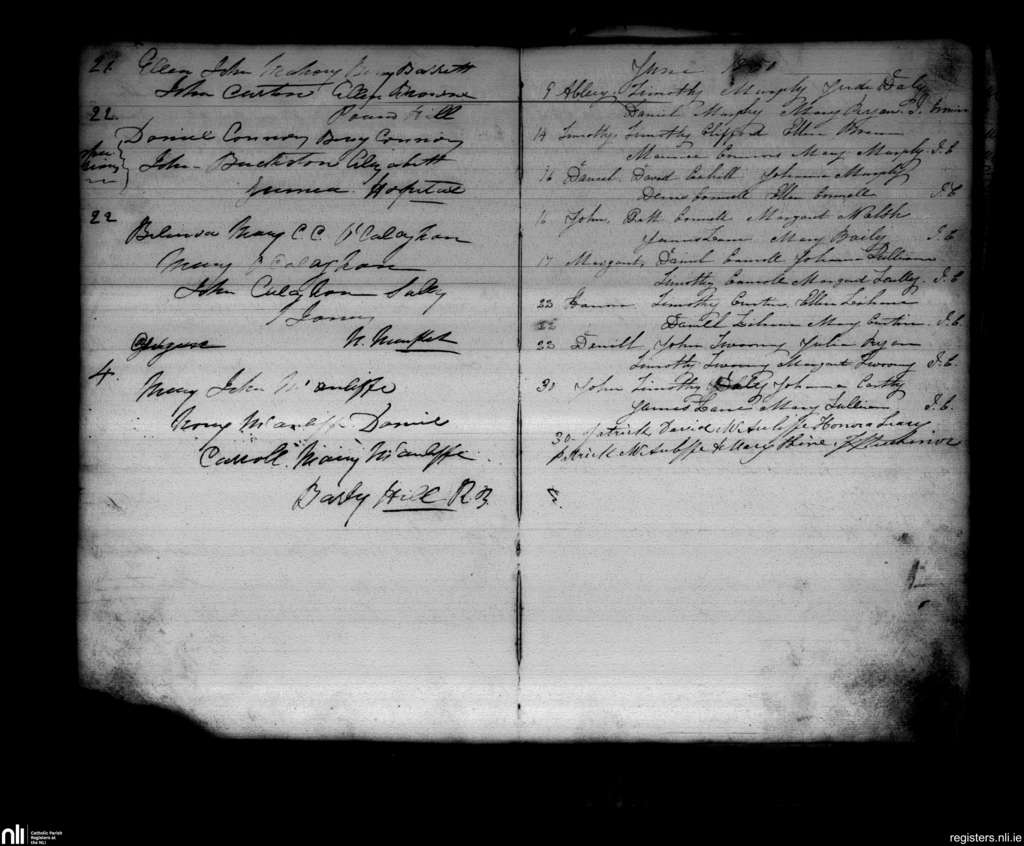 21 Ellen John Mahony Bevy Barrett
John Curtin Ellen Browne
Pound Hill
22 Daniel Connors Bevy Connors
John Elizabeth
Hospital
22
Belinda Mary C.C. O'Calaghan
Mary Calaghan
John Calaghan Sally
Jones
N. Market
4. Mary John McAuliffe
Nony McAuliffe Daniel
Carroll. Mary McAuliffe
Barly Hill R.B.
June
9 Abbey Timothy Murphy Jude Daly
Daniel Murphy Mary Ryan J.
14 Timothy Timothy Clifford Ellen
Maurice Connors Mary Murphy J.C
16 Daniel David Cahill Johanna Murphy
Denis Connell Ellen Connell J.C
16 John Patt Connell Margaret Walsh
James Lane Mary Baily J.C
17 Margaret Daniel Johanna Sullivan
Timothy Margaret Scully J.C
22 Timothy Curtin Ellen Lehane
22 Daniel Lehane Mary Curtin J.C.
23 Denis John Twoomy Julia Ryan
Timothy Twoomy Margaret Twoomy J.C.
30 John Timothy Daly Johanna Carthy
James Lane Mary Sullivan J.C.
30 Patrick David McAuliffe Honora Leary
Patrick McAuliffe & Mary
nli
Catholic Parish
Registers at
the NLI
registers.nli.ie